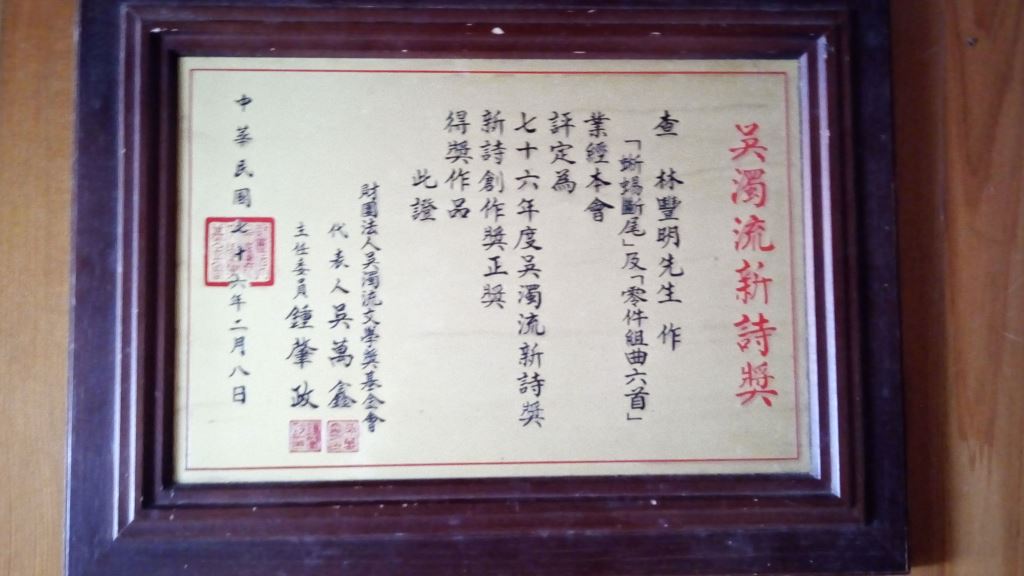 吳濁流新詩獎
查 林豐明先生 作
「蜥蜴斷尾」及「零件組曲六首」
業經本會
評定為
七十六年度吳濁流新詩獎
新詩創作獎正獎
得獎作品
此證
財團法人吳濁流文學獎基金會
代表人 吳萬鑫
主任委員 鍾肇政
中華民國七十六年二月八日